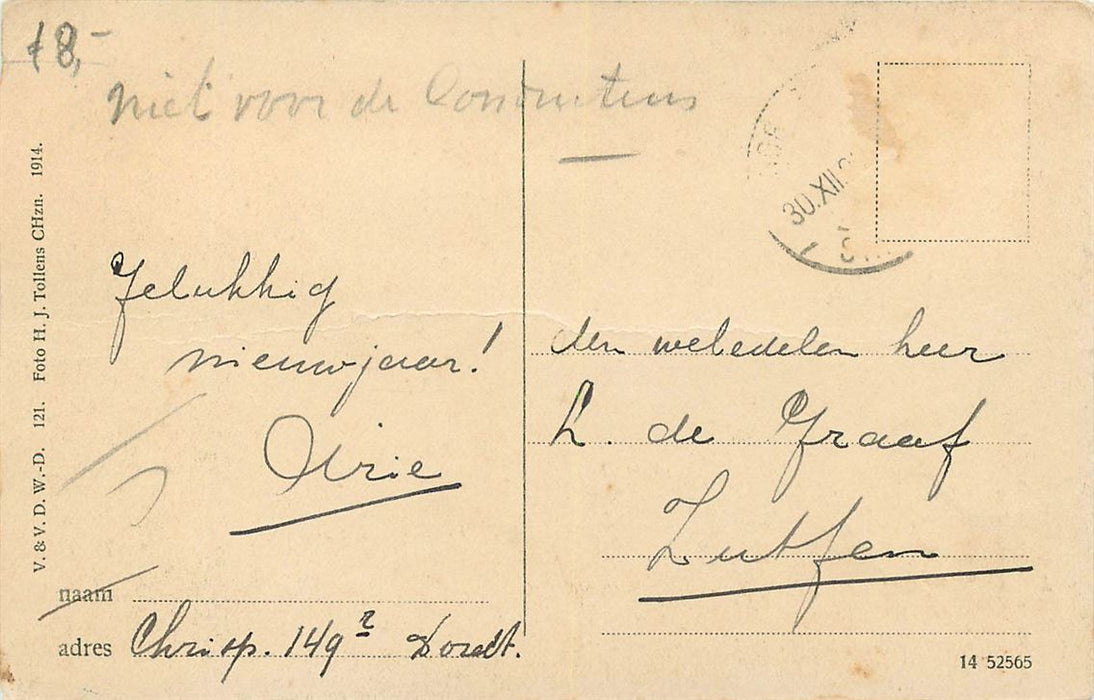 18,-
niet voor de
V. & V. D. W.-D. 121. Foto H. J. Tollens CHzn. 1914.
30.XII
Gelukkig
nieuwjaar!
Arie
naam
adres Chrisp. 149 Dordt.
den weledelen heer
L. de Graaf
Zutfen
14 52565